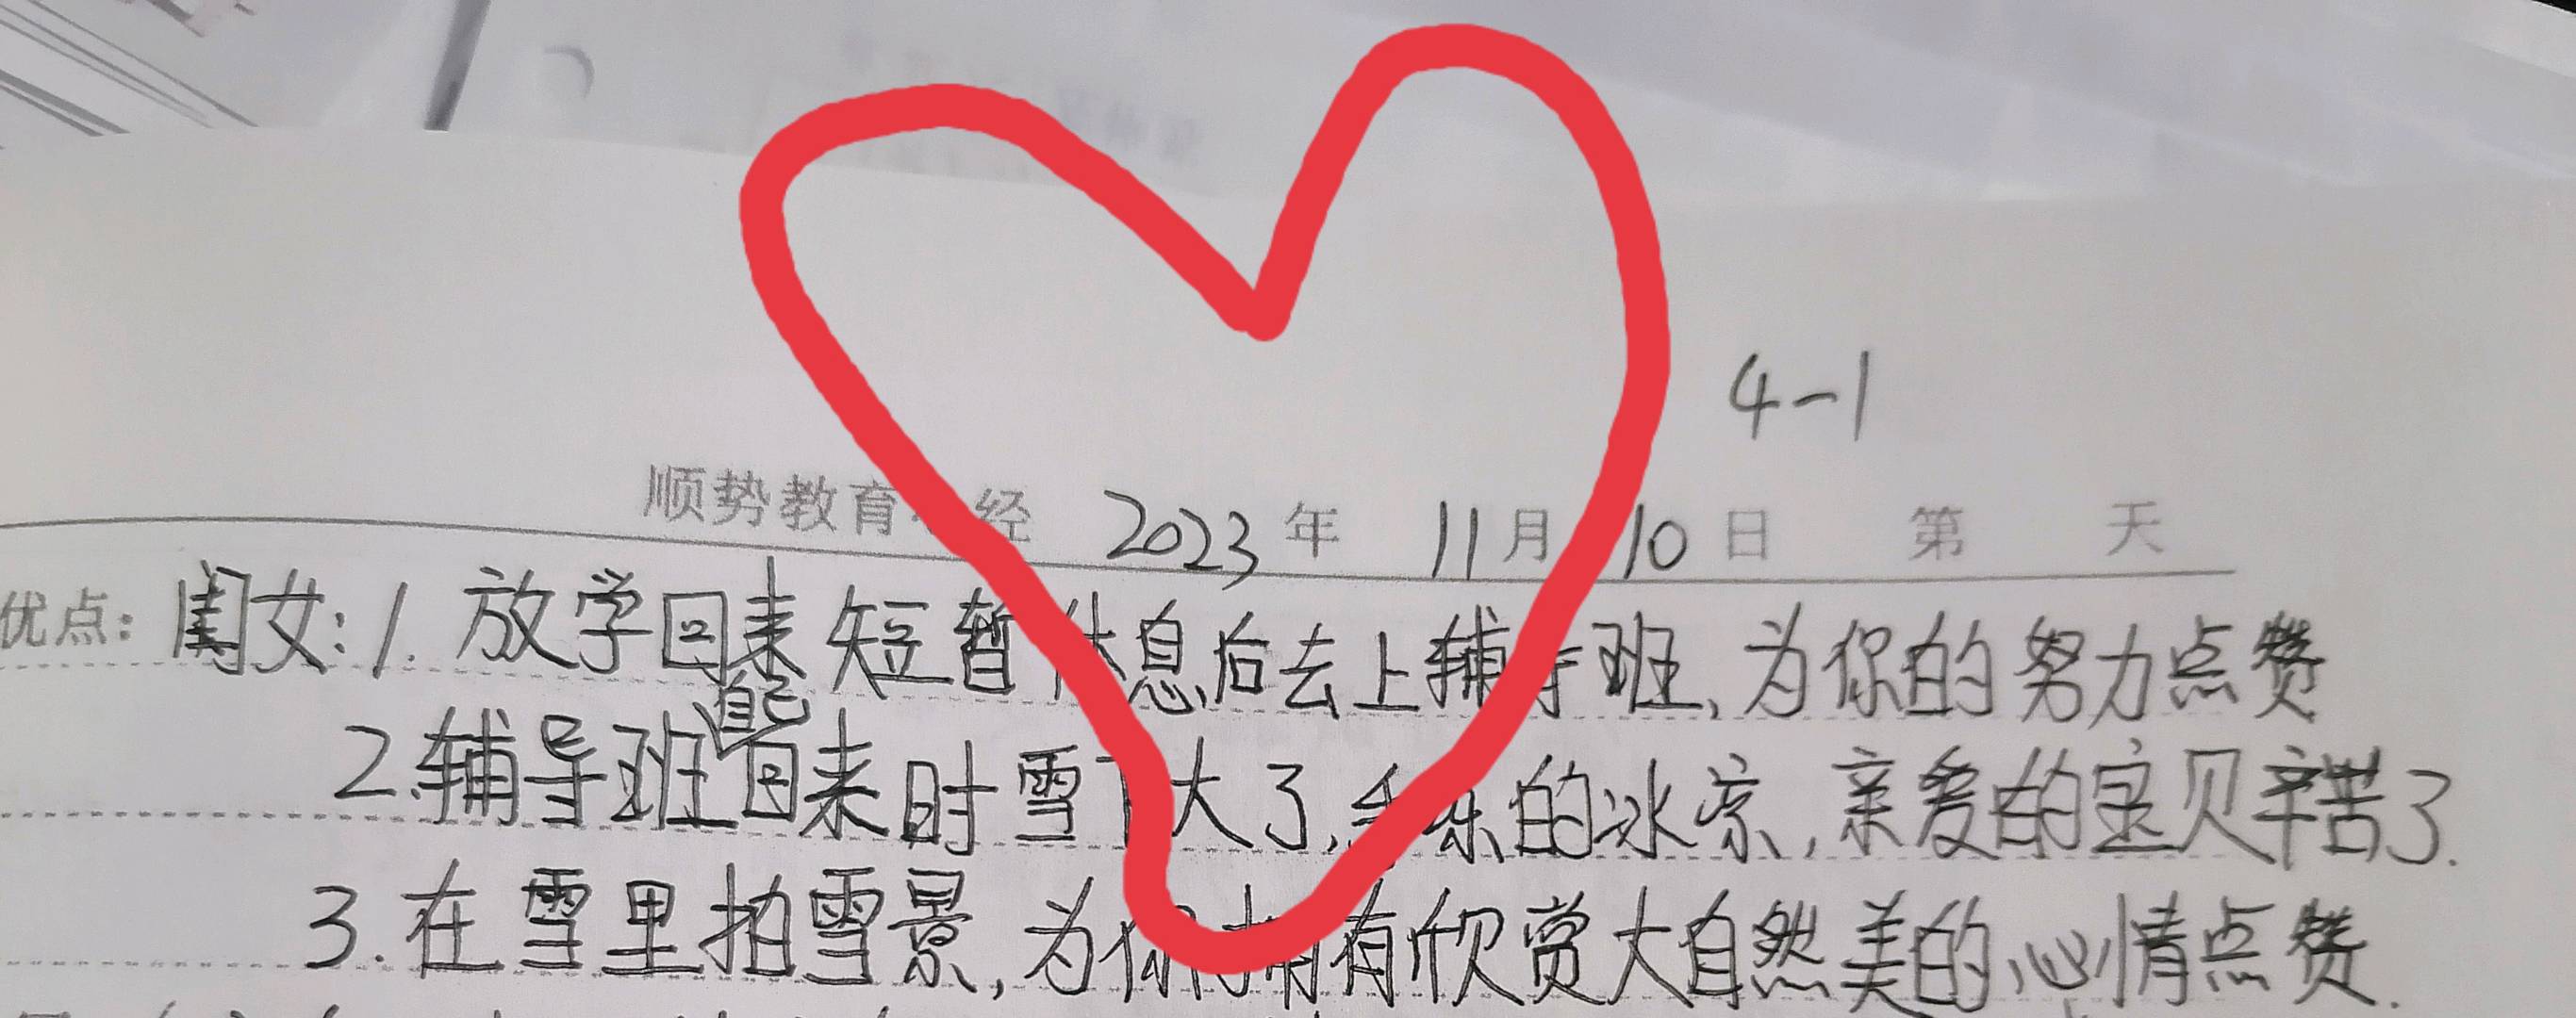 4-1
顺势教育 经 2023年 11月 10日 第 天
优点: 闺女: 1. 放学回来短暂休息后去上辅导班,为你的努力点赞
2. 辅导班自己回来时雪下大了, 冻的冰凉,亲爱的宝贝辛苦了.
3. 在雪里拍雪景,为你拥有欣赏大自然美的心情点赞.